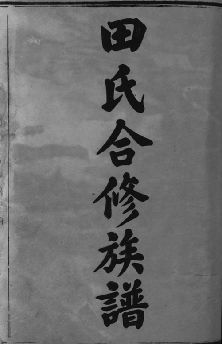 田氏合修族譜